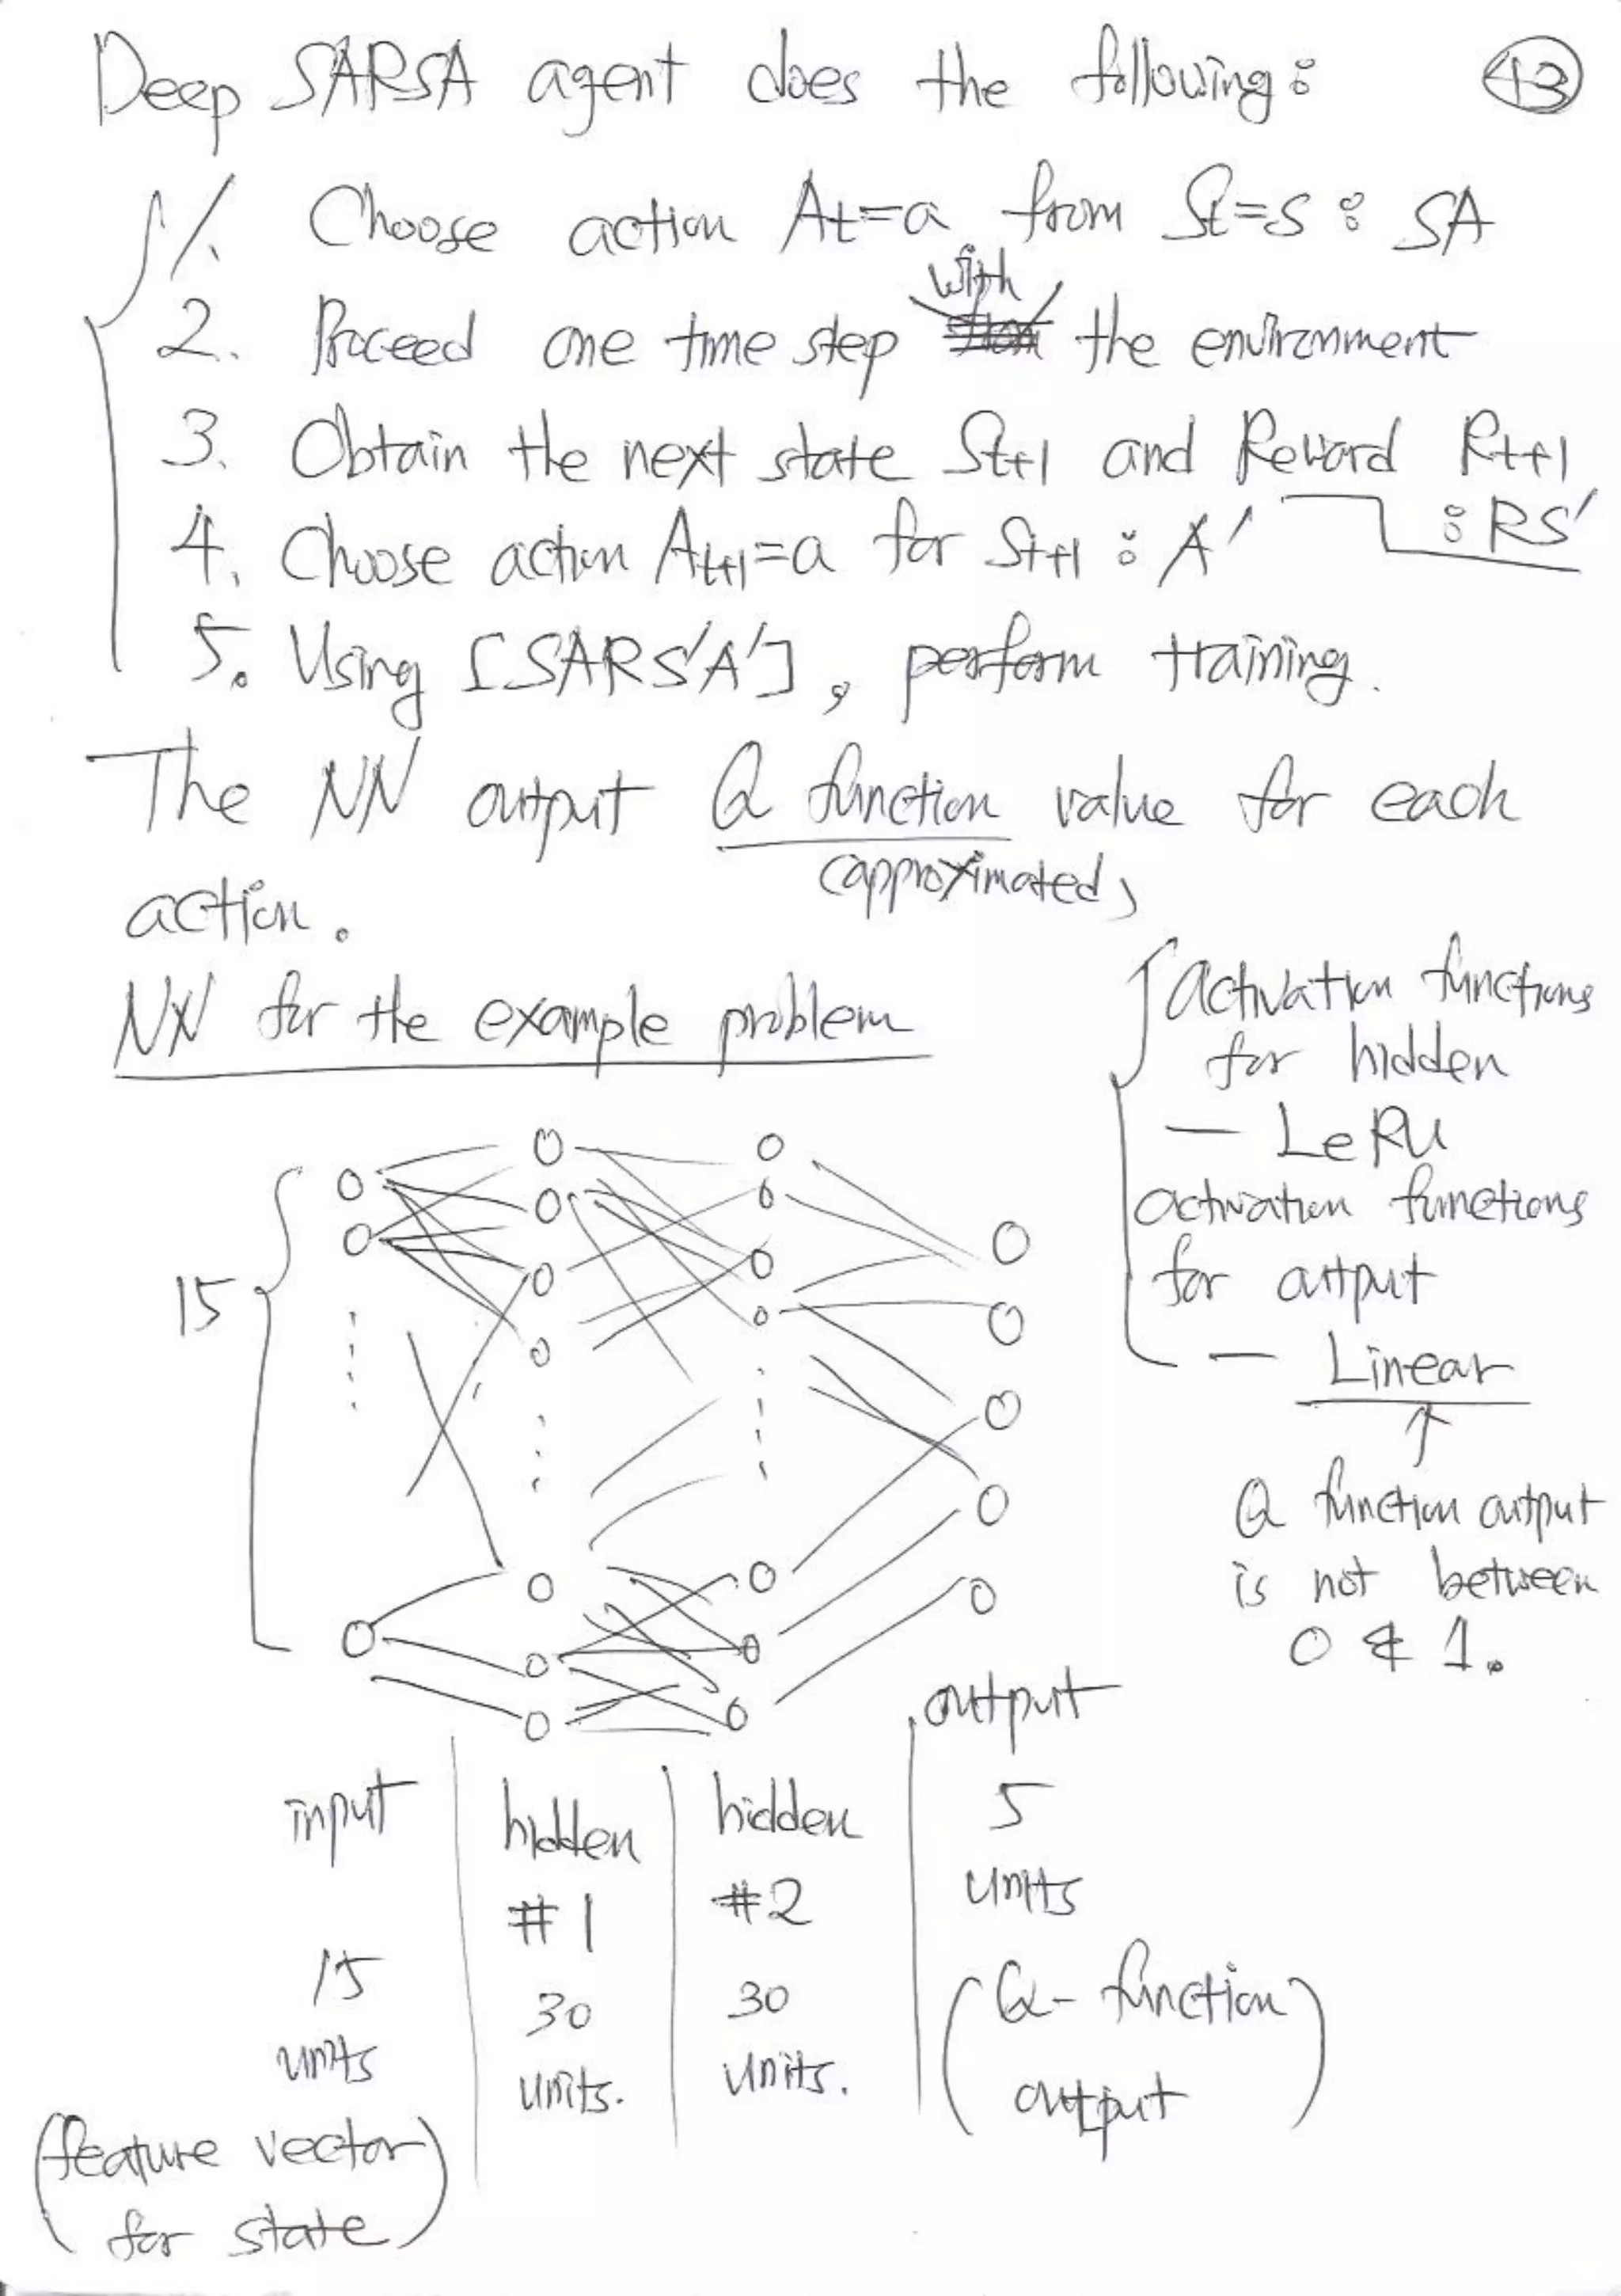 Deep SARSA agent does the following: 43
1. Choose action At=a from St=s : SA
2. Proceed one time step with the environment
3. Obtain the next state St+1 and Reward Rt+1
: RS'
4. Choose action At+1=a for St+1 : A'
5. Using [SARS'A'], perform training.
The NN output Q function value for each
(approximated)
action.
NN for the example problem
activation functions
for hidden
— LeRU
activation functions
for output
— Linear
↑
Q function output
is not between
0 & 1.
15
input
15
units
(feature vector
for state)
hidden
#1
30
units.
hidden
#2
30
units.
output
5
units
(Q-function
output)